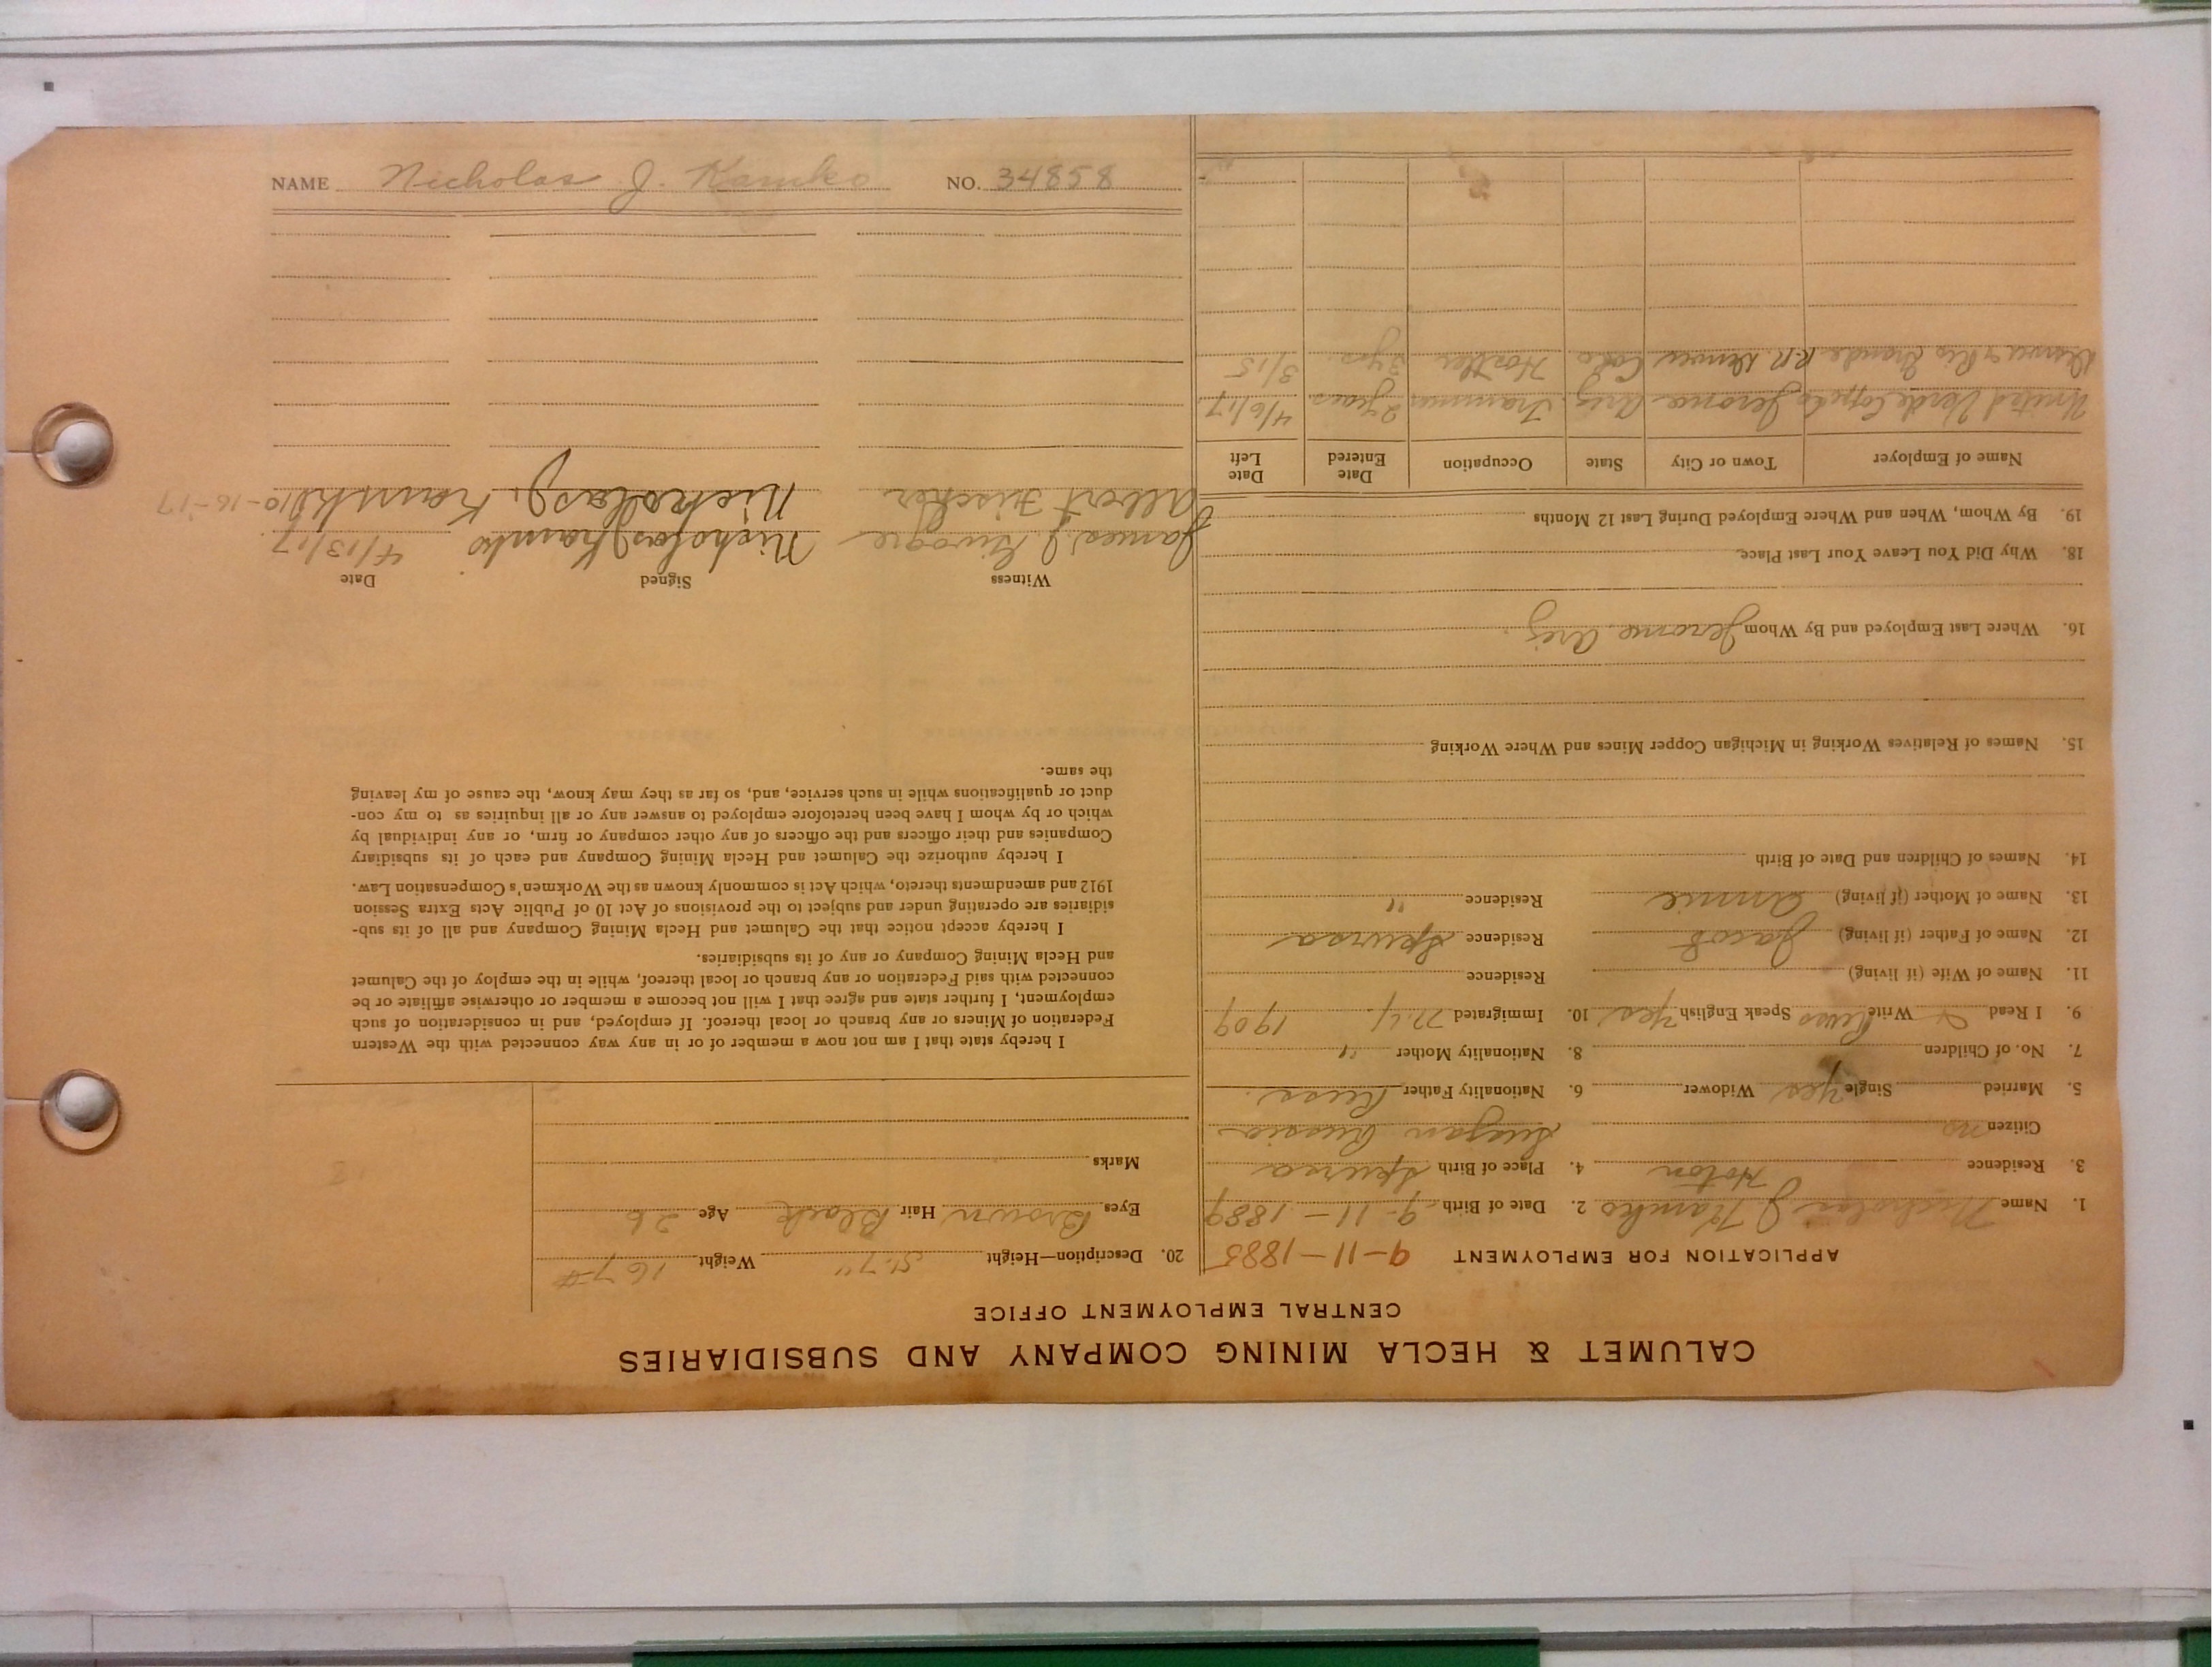 NAME Nicholas J. Kamko NO. 34858
CALUMET & HECLA MINING COMPANY AND SUBSIDIARIES
CENTRAL EMPLOYMENT OFFICE
APPLICATION FOR EMPLOYMENT 9-11-1885
1. Name Nicholas J Kamko 2. Date of Birth 9-11-1889
3. Residence Hoton 4. Place of Birth Spurna
Citizen no Russia
5. Married Single Yes Widower 6. Nationality Father Russ
7. No. of Children 8. Nationality Mother "
9. I Read & Write Russ Speak English Yes 10. Immigrated N.Y. 1909
11. Name of Wife (if living) Residence
12. Name of Father (if living) Jacob Residence Spurna
13. Name of Mother (if living) Annie Residence "
14. Names of Children and Date of Birth
15. Names of Relatives Working in Michigan Copper Mines and Where Working
16. Where Last Employed and By Whom Jerome, Ariz.
18. Why Did You Leave Your Last Place
19. By Whom, When and Where Employed During Last 12 Months
Name of Employer Town or City State Occupation Date Entered Date Left
United Verde Copper Co Jerome Ariz Trammer 2 years 4/6/17
Denver & Rio Grande R.R. Denver Colo Hostler 3 yrs. 3/15
20. Description—Height 5'.7" Weight 167#
Eyes Brown Hair Black Age 26
Marks
I hereby state that I am not now a member of or in any way connected with the Western
Federation of Miners or any branch or local thereof. If employed, and in consideration of such
employment, I further state and agree that I will not become a member or otherwise affiliate or be
connected with said Federation or any branch or local thereof, while in the employ of the Calumet
and Hecla Mining Company or any of its subsidiaries.
I hereby accept notice that the Calumet and Hecla Mining Company and all of its sub-
sidiaries are operating under and subject to the provisions of Act 10 of Public Acts Extra Session
1912 and amendments thereto, which Act is commonly known as the Workmen's Compensation Law.
I hereby authorize the Calumet and Hecla Mining Company and each of its subsidiary
Companies and their officers and the officers of any other company or firm, or any individual by
which or by whom I have been heretofore employed to answer any or all inquiries as to my con-
duct or qualifications while in such service, and, so far as they may know, the cause of my leaving
the same.
Witness Signed Date
James J. Nicholas Kamko 4/13/17
Albert Fischer Nickolas J. 10-16-17